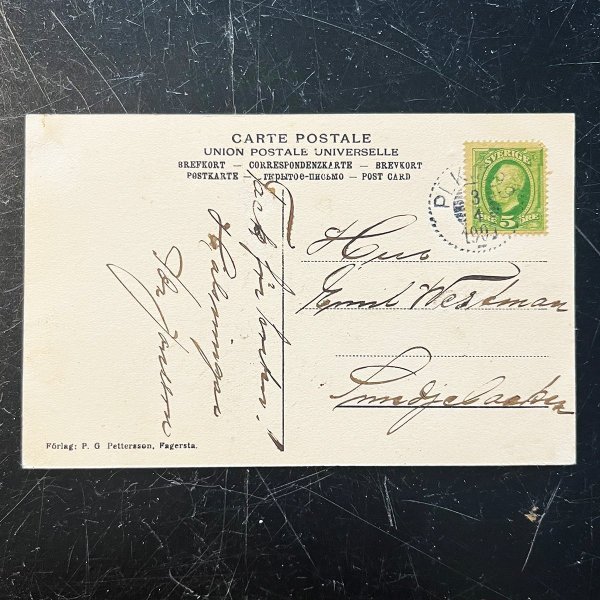 CARTE POSTALE
UNION POSTALE UNIVERSELLE
BREFKORT — CORRESPONDENZKARTE — BREVKORT
POSTKARTE — ОТКРЫТОЕ-ПИСЬМО — POST CARD
SVERIGE
5
ÖRE
PLK
3
4
Tack för kortet!
Hälsningar
Herr
Emil Westman
Smedjebacken
Förlag: P. G Pettersson, Fagersta.